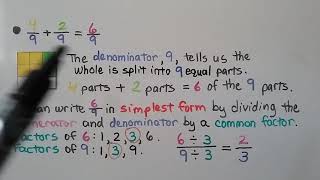 4/9 + 2/9 = 6/9
The denominator, 9, tells us the
whole is split into 9 equal parts.
4 parts + 2 parts = 6 of the 9 parts.
can write 6/9 in simplest form by dividing the
and denominator by a common factor.
factors of 6: 1, 2, 3, 6.
factors of 9: 1, 3, 9.
6 ÷ 3 / 9 ÷ 3 = 2/3